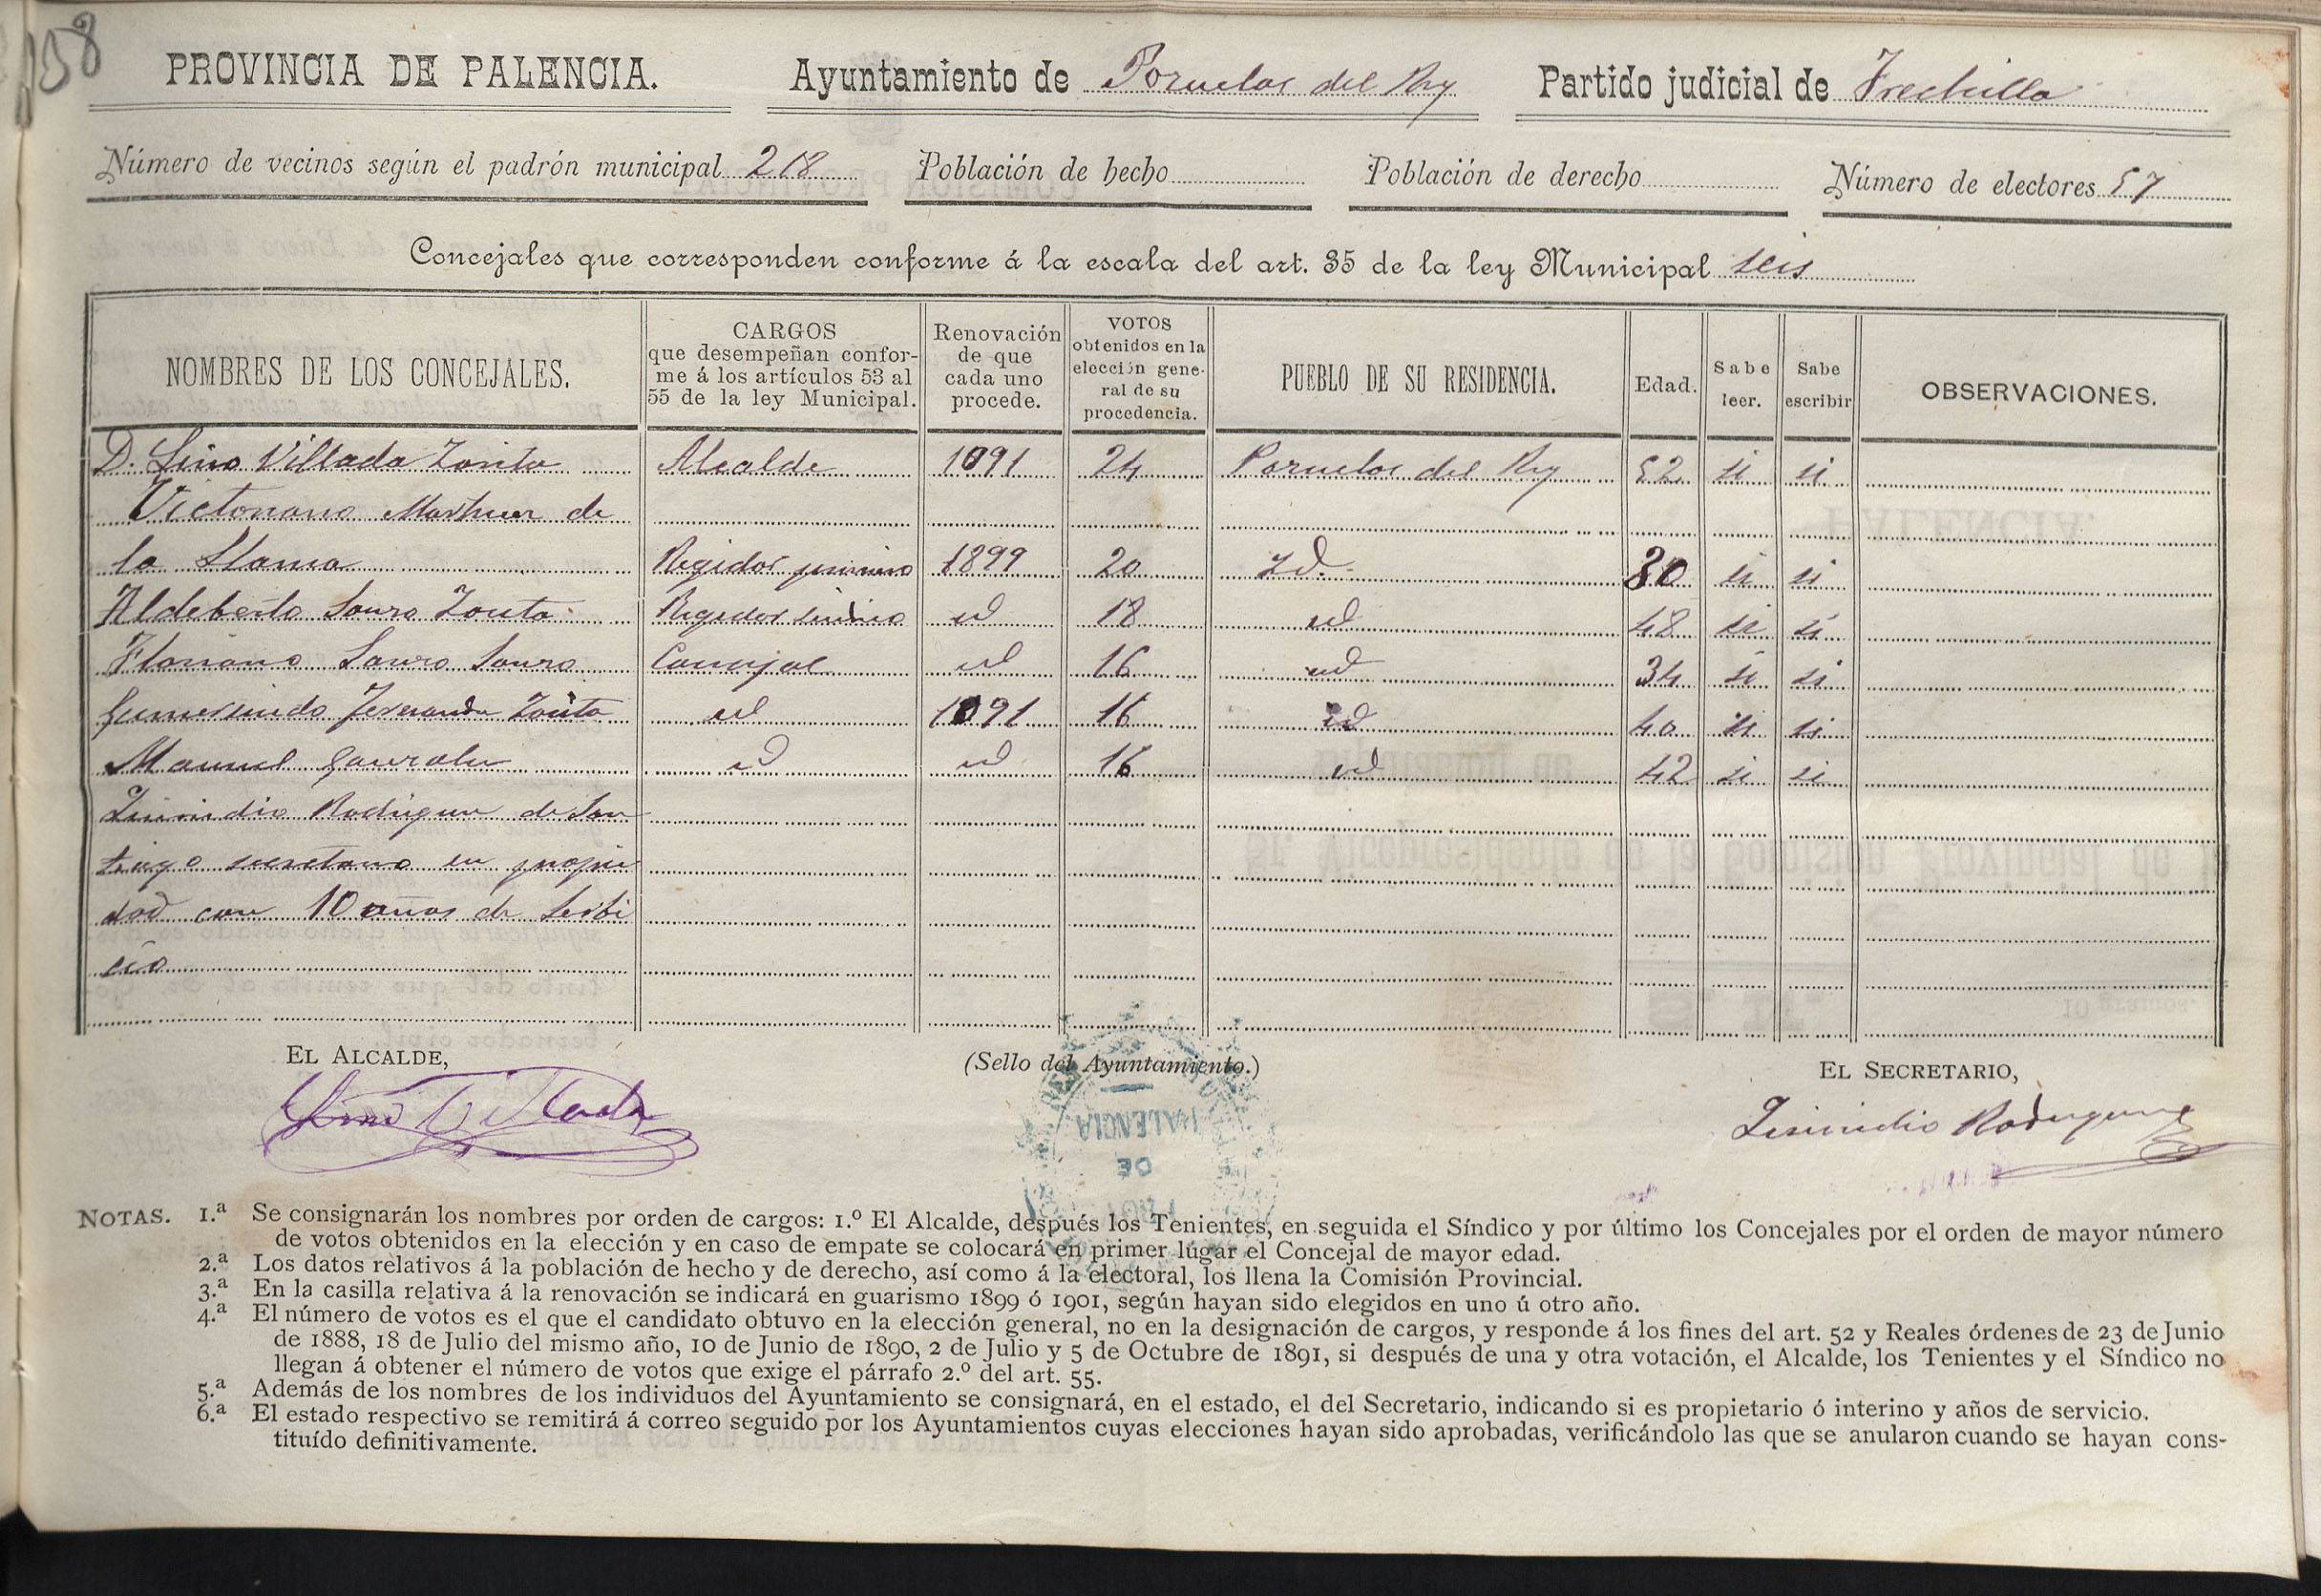 158
PROVINCIA DE PALENCIA. Ayuntamiento de Pozuelos del Rey Partido judicial de Frechilla
Número de vecinos según el padrón municipal 218 Población de hecho Población de derecho Número de electores 57
Concejales que corresponden conforme á la escala del art. 35 de la ley Municipal seis
NOMBRES DE LOS CONCEJALES. CARGOS que desempeñan conforme á los artículos 53 al 55 de la ley Municipal. Renovación de que cada uno procede. VOTOS obtenidos en la elección general de su procedencia. PUEBLO DE SU RESIDENCIA. Edad. Sabe leer. Sabe escribir OBSERVACIONES.
D. Lino Villada Zorita Alcalde 1091 24 Pozuelos del Rey 52 si si
Victoriano Martinez de
la Llama Regidor primero 1899 20 Id. 30 si si
Aldeberto Sauzo Zorita Regidor sindico id 18 id 48 si si
Floriano Sauzo Sauzo Concejal id 16 id 34 si si
Gumersindo Fernandez Zorita id 1091 16 id 40 si si
Manuel Gonzalez id id 16 id 42 si si
Rodriguez de San
tiago secretario en propie
dad con 10 años de serbi
cio
EL ALCALDE, (Sello del Ayuntamiento.) EL SECRETARIO,
Lino Villada Rodriguez
PALENCIA
DE
NOTAS. 1.ª Se consignarán los nombres por orden de cargos: 1.º El Alcalde, después los Tenientes, en seguida el Síndico y por último los Concejales por el orden de mayor número
de votos obtenidos en la elección y en caso de empate se colocará en primer lugar el Concejal de mayor edad.
2.ª Los datos relativos á la población de hecho y de derecho, así como á la electoral, los llena la Comisión Provincial.
3.ª En la casilla relativa á la renovación se indicará en guarismo 1899 ó 1901, según hayan sido elegidos en uno ú otro año.
4.ª El número de votos es el que el candidato obtuvo en la elección general, no en la designación de cargos, y responde á los fines del art. 52 y Reales órdenes de 23 de Junio
de 1888, 18 de Julio del mismo año, 10 de Junio de 1890, 2 de Julio y 5 de Octubre de 1891, si después de una y otra votación, el Alcalde, los Tenientes y el Síndico no
llegan á obtener el número de votos que exige el párrafo 2.º del art. 55.
5.ª Además de los nombres de los individuos del Ayuntamiento se consignará, en el estado, el del Secretario, indicando si es propietario ó interino y años de servicio.
6.ª El estado respectivo se remitirá á correo seguido por los Ayuntamientos cuyas elecciones hayan sido aprobadas, verificándolo las que se anularon cuando se hayan cons-
tituído definitivamente.